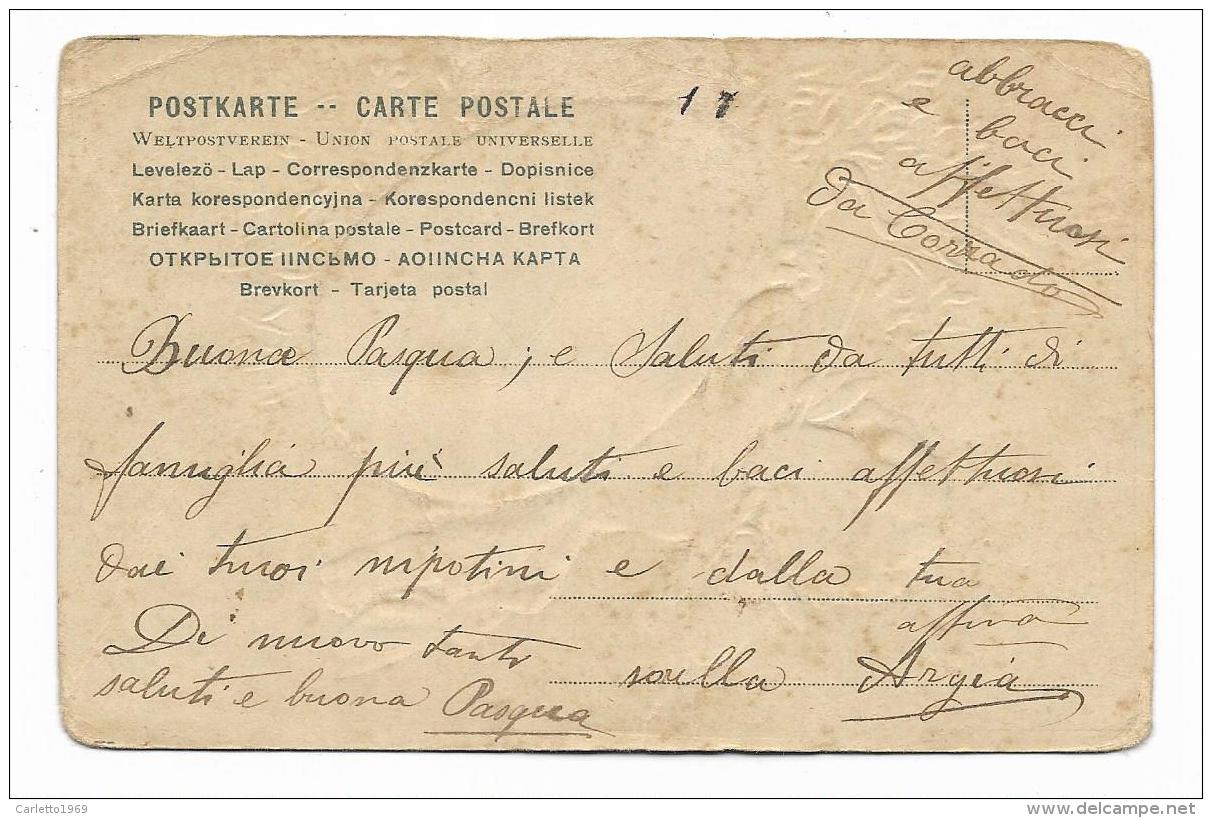 POSTKARTE -- CARTE POSTALE
WELTPOSTVEREIN - UNION POSTALE UNIVERSELLE
Levelezö - Lap - Correspondenzkarte - Dopisnice
Karta korespondencyjna - Korespondencni listek
Briefkaart - Cartolina postale - Postcard - Brefkort
ОТКРЫТОЕ IIИСЬМО - AOIIИСНА КАРТА
Brevkort - Tarjeta postal
17
abbracci
e baci
affettuosi
Da Corrado
Buona Pasqua; e Saluti da tutti di
famiglia più saluti e baci affettuosi
dai tuoi nipotini e dalla tua
affma
sorella Argia
Di nuovo tanti
saluti e buona Pasqua
Carletto1969
delcampe.net